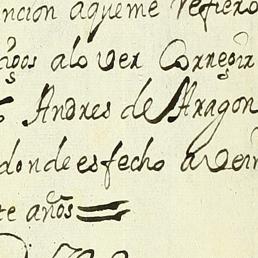 ncion aqueme refiero
alo ver Corregir
Andres de Aragon
donde es fecho a vein
te años